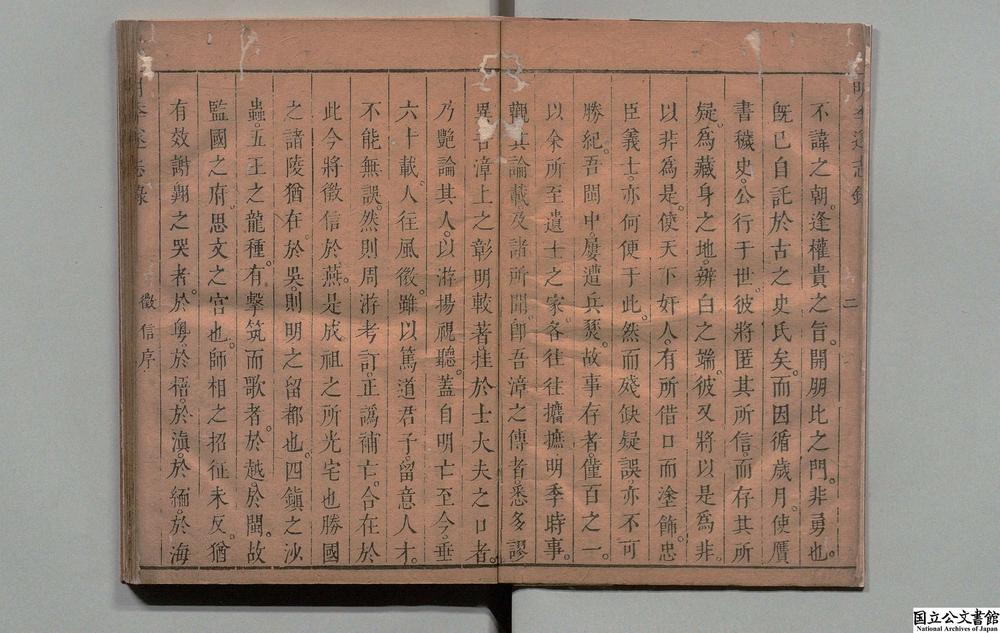 不諱之朝。逢權貴之旨。開朋比之門。非勇也。
旣已自託於古之史氏矣。而因循歲月。使贋
書穢史。公行于世。彼將匿其所信。而存其所
疑。爲藏身之地。辨白之端。彼又將以是爲非。
以非爲是。使天下奸人。有所借口而塗飾。忠
臣義士。亦何便于此。然而殘缺疑誤。亦不可
勝紀。吾閩中。屢遭兵燹。故事存者。僅百之一。
以余所至遺士之家。各往往攟摭明季時事。
觀其論載。及諸所聞。卽吾漳之傳者。悉多謬
異。吾漳上之彰明較著。挂於士大夫之口者。
乃艷論其人。以游揚視聽。蓋自明亡至今。垂
六十載。人往風微。雖以篤道君子。留意人才。
不能無誤。然則周游考訂。正譌補亡。合在於
此今將徵信於燕。是成祖之所光宅也勝國
之諸陵猶在。於吳。則明之留都也。四鎭之沙
蟲。五王之龍種。有擊筑而歌者。於越。於閩。故
監國之府。思文之宮也。師相之招征未反。猶
有效謝翺之哭者。於粵。於梧。於滇。於緬。於海
明季遂志錄
二
明季遂志錄
徵信序
国立公文書館
National Archives of Japan